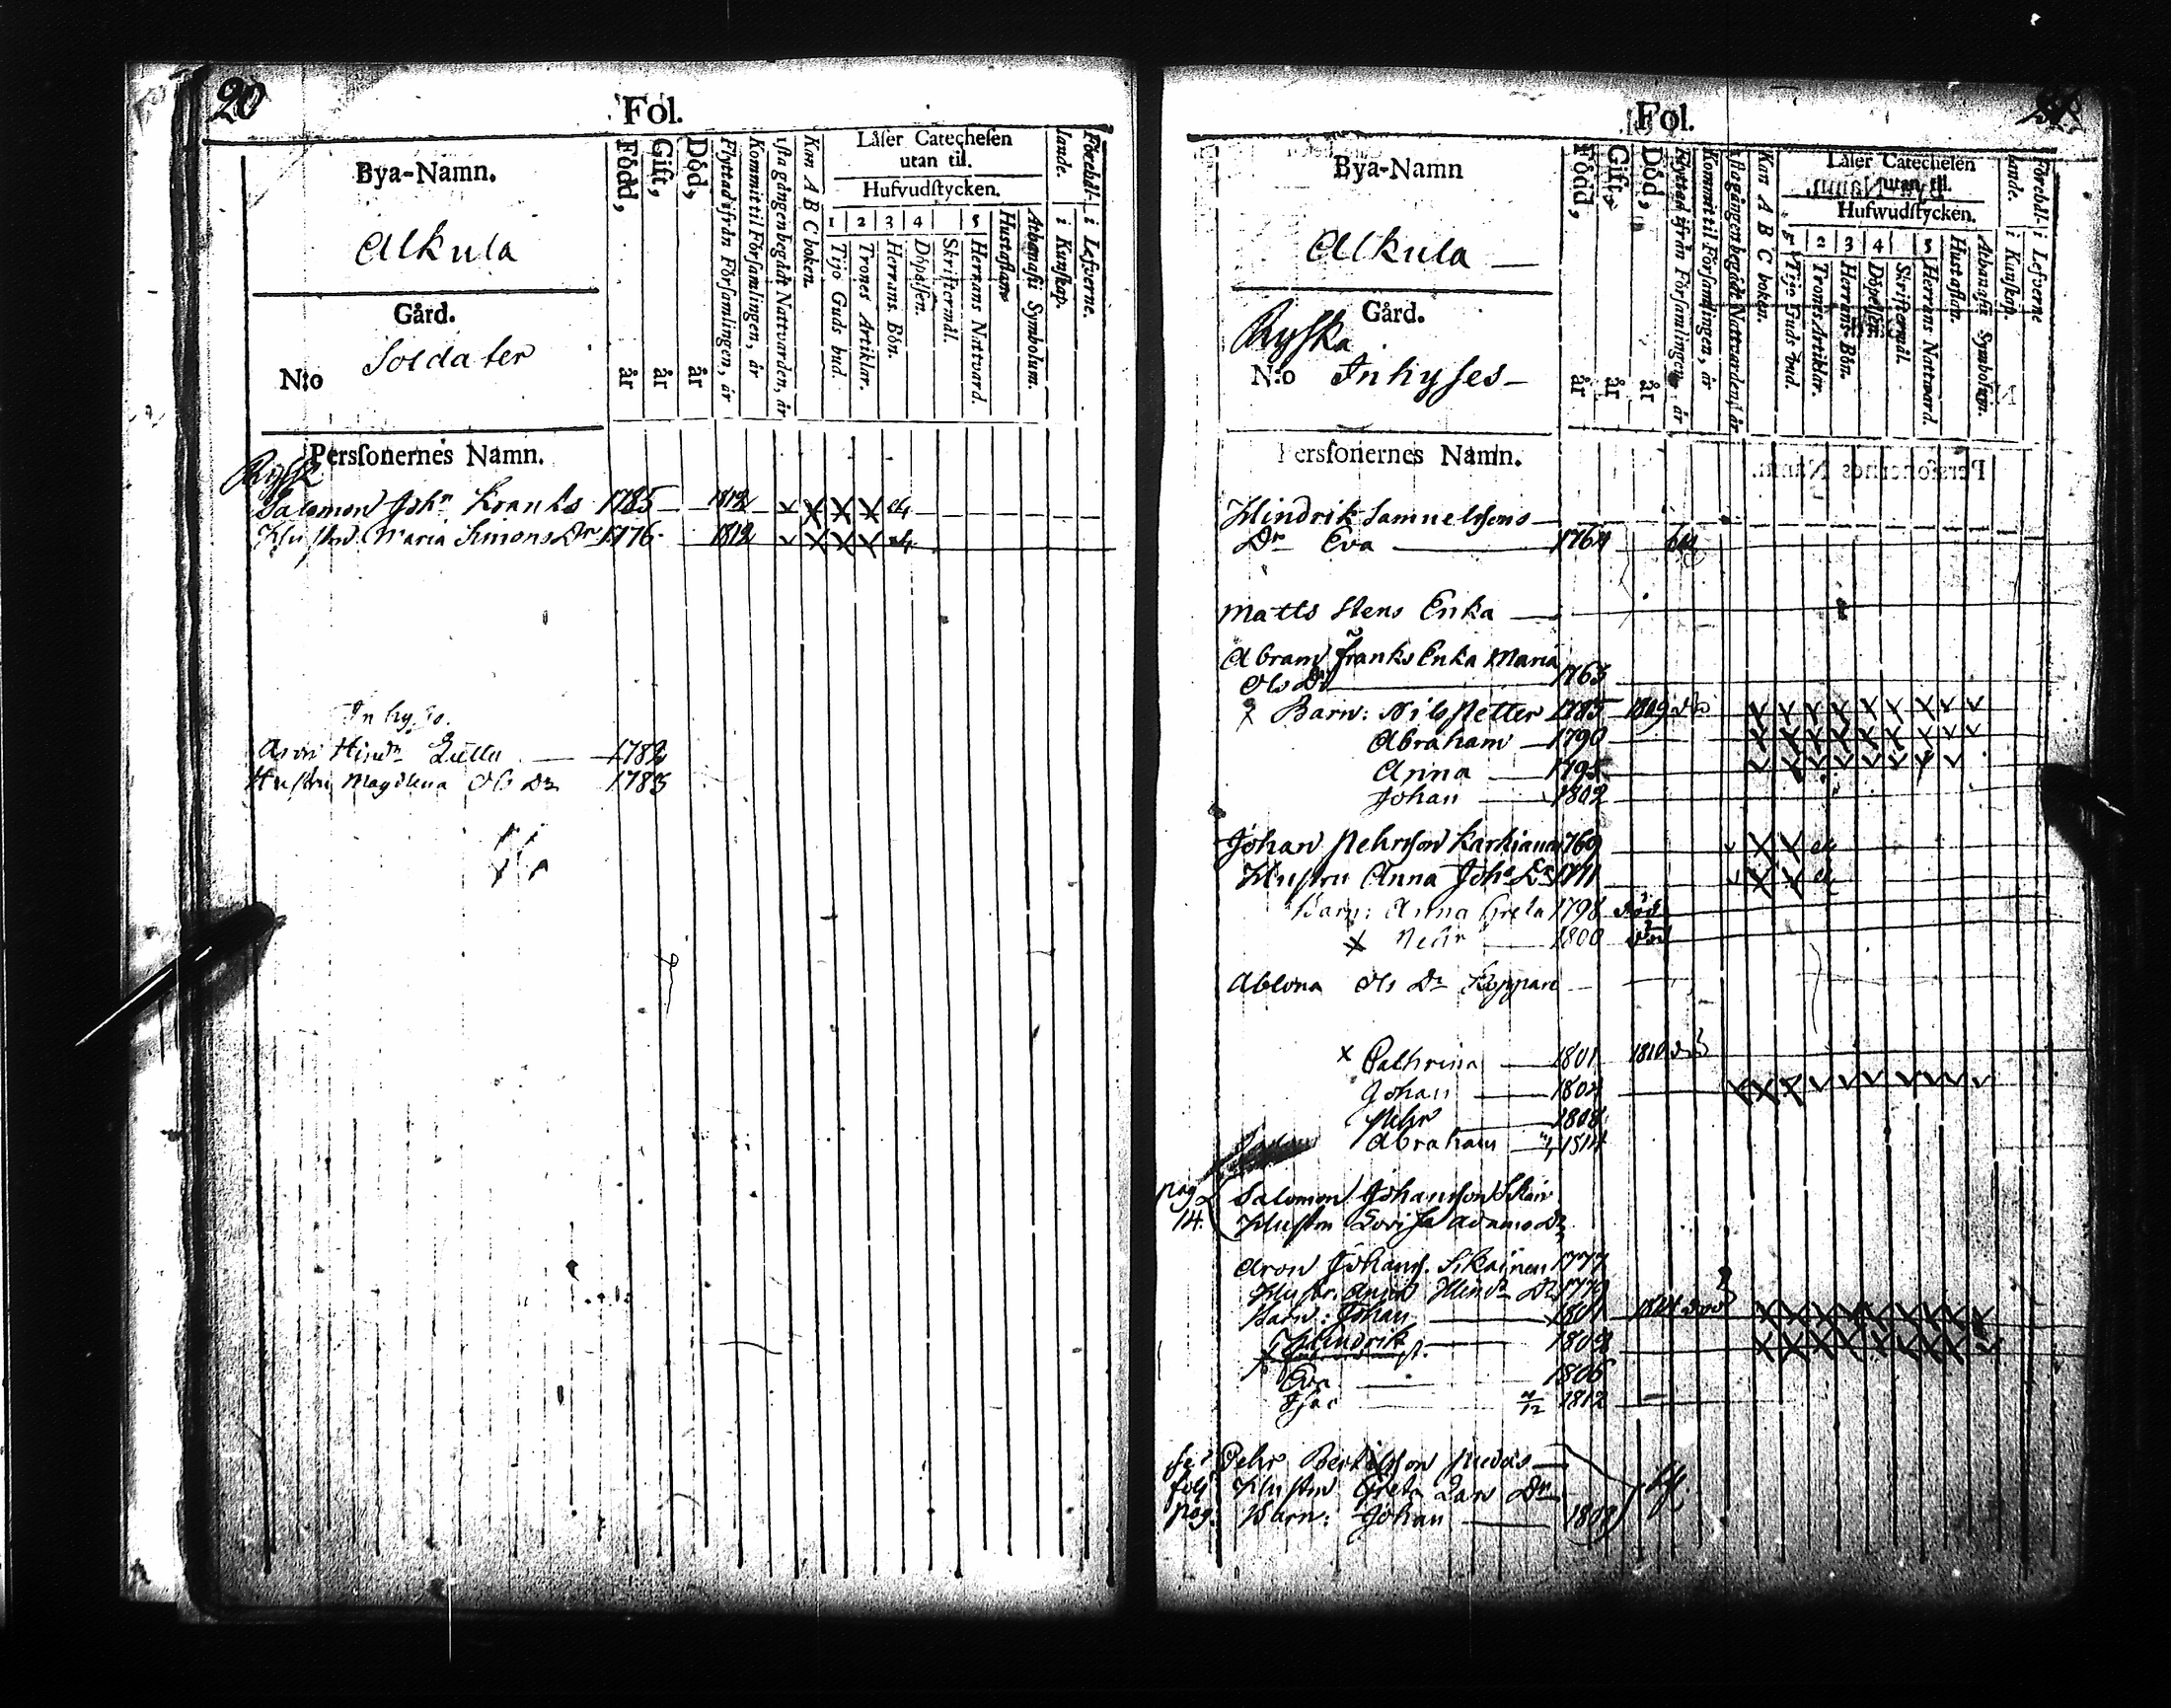 20
Fol.
Bya-Namn.
Alkula
Gård.
Soldater
N:o
Född, år
Gift, år
Död, år
Flyttad ifrån Församlingen, år
Kommit til Församlingen, år
1sta gången begådt Nattvarden, år
Kan A B C boken.
Låser Catechesen
utan til.
Hufvudstycken.
1 2 3 4 5
Tijo Guds bud.
Trones Artiklar.
Herrans Bön.
Döpelsen.
Skriftermål.
Herrans Nattvard.
Hustaflan.
Athanasii Symbolum.
Förehål-lande.
i Kunskap.
i Lefverne.
Personernes Namn.
Ryssk
Salomon Joh:n Kranks 1785 1812
Hustru Maria Simons Dr 1776 1812
Inhyses.
Aron Hind:n 1782
Hustru Magdlena Ols Dr 1783
Fol.
Bya-Namn
Alkula
Gård.
Ryska
N:o Inhyses
Född, år
Gift, år
Död, år
Flyttad ifrån Församlingen, år
Kommit til Församlingen, år
1sta gången begådt Nattvarden, år
Kan A B C boken.
Låser Catechesen
utan til.
Hufwudstycken.
2 3 4 5
Tijo Guds bud.
Trones Artiklar.
Herrans Bön.
Döpelsen.
Skriftermål.
Herrans Nattward.
Hustaflan.
Athanasii Symbolum.
Förehål-lande.
i Kunskap.
i Lefverne
Personernes Namn.
Hindrik Samuelssons
Dr Eva 1764
Matts Stens Enka
Abram Franks Enka Maria
Ols Dr 1763
x Barn: Nils Petter 1785 1809
Abraham 1790
Anna 1795
Johan 1802
Johan Pehrsson Karkiainen 1769
Hustru Anna Johs Dr 1771
Barn: Anna Greta 1798 död
x Pehr 1800 död
Ablona Ols Dr
x Cathrina 1801 1810
Johan 1804
Pehr 1808
Abraham 1814
pag 14. Salomon Johansson
Hustru Lovisa Adams Dr
Aron Johans. Sikainen 1777
Hustr. Anna Hind:n Dr 1779
Barn: Johan 1801
Hindrik 1804
Eva 1806
Isac 1812
följ. Pehr Bertilsson
Hustru Greta Lars Dr
pag. Barn: Johan 1809